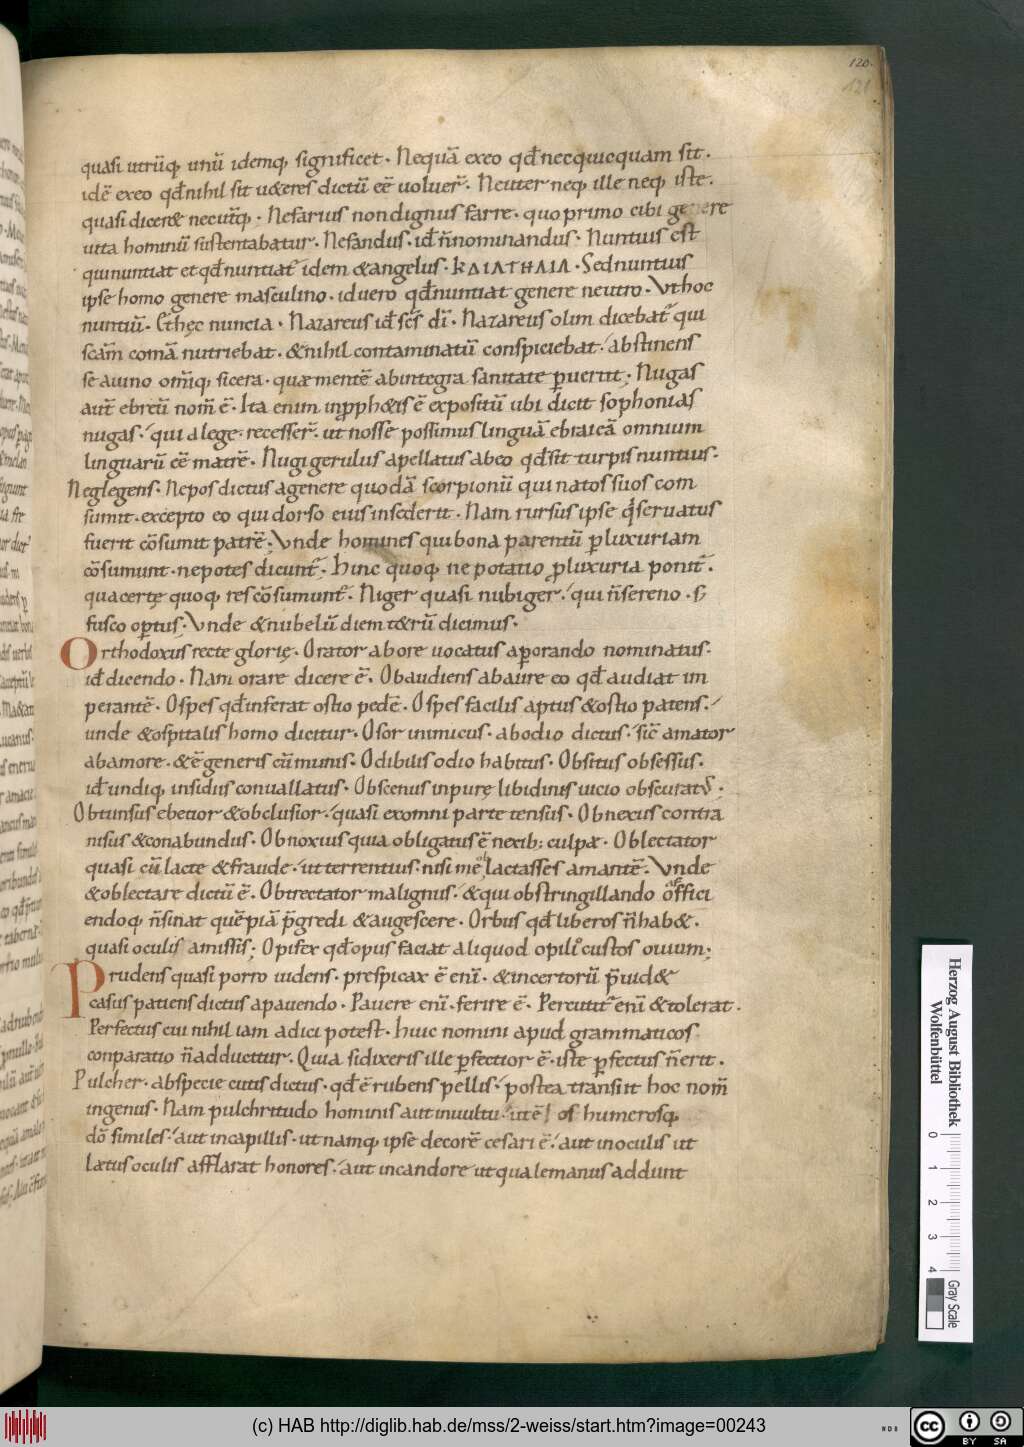 120.
121
quasi utrūq; unū idemq; significet. Nequā exeo qđ necquicquam sit.
idē exeo qđ nihil sit u&eres dictū eē uoluer̄. Neuter neq; ille neq; iste.
quasi dicer& necut̄q;. Nefarius non dignus farre. quo primo cibi genere
uita hominū sustentabatur. Nefandus. id̄ n̄ nominandus. Nuntius est
qui nuntiat et qđ nuntiat̄ idem & angelus. Sed nuntius
ipse homo genere masculino. id uero qđ nuntiat genere neutro. Vt hoc
nuntiū. & hęc nuncia. Nazareus id̄ sc̄s dī. Nazareus olim dicebat̄ qui
sc̄am comā nutriebat. & nihil contaminatū conspiciebat. abstinens
se a uino om̄iq; sicera. quæ mentē ab integra sanitate ꝑuertit; Nugas
aut̄ ebreū nom̄ ē. Ita enim in ꝓph&is ē expositū ubi dicit sophonias
nugas. qui a lege recesser̄. ut nosse possimus linguā ebraicā omnium
linguarū eē matrē. Nugigerulus apellatus ab eo qđ sit turpis nuntius.
Neglegens. Nepos dictus a genere quodā scorpionū qui natos suos com
sumit. excepto eo qui dorso eius insederit. Nam rursus ipse q̇ seruatus
fuerit cōsumit patrē; Vnde homines qui bona parentū ꝑ luxuriam
cōsumunt. nepotes dicunt̄. Hinc quoq; nepotatio ꝓ luxuria ponit̄.
qua certę quoq; res cōsumunt̄. Niger quasi nubiger. qui n̄ sereno. s;
fusco opertus. Vnde & nubelū diem t&rū dicimus.
Orthodoxus recte glorię. Orator ab ore uocatus a ꝑorando nominatus.
id̄ dicendo. Nam orare dicere ē. Obaudiens ab aure eo qđ audiat im
perantē. Ospes qđ inferat ostio pedē. Ospes facilis aptus & ostio patens.
unde & ospitalis homo dicitur. Osor inimicus. ab odio dictus. sic̄ amator
ab amore. & ē generis cūmunis. Odibilis odio habitus. Obsitus obsessus.
id̄ undiq; insidiis conuallatus. Obscenus inpurę libidinis uicio obscuratꝰ.
Obtunsus ebetior & obclusior. quasi ex omni parte tensus. Obnexus contra
nisus & conabundus. Obnoxius quia obligatus ē nexib; culpæ. Oblectator
quasi cū lacte & fraude. ut terrentius. nisi me ob lactasses amantē. Vnde
& oblectare dictū ē. Obtrectator malignus. & qui obstringillando offici
endoq; n̄ sinat quēpiā p̄gredi & augescere. Orbus qđ liberos n̄ hab&.
quasi oculis amissis; Opifex qđ opus faciat aliquod opilio custos ouium;
Prudens quasi porro uidens. prespicax ē enī. & incertorū p̄uid&
casus patiens dictus a pauendo. Pauere enī. ferire ē. Percutit̄ enī & tolerat.
Perfectus cui nihil iam adici potest. huic nomini apud grammaticos
conparatio n̄ adducitur. Quia si dixeris ille ꝑfectior ē. iste ꝑfectus n̄ erit.
Pulcher. ab specie cutis dictus. qđ ē rubens pellis. postea transiit hoc nom̄
in genus. Nam pulchritudo hominis aut in uultu. ut ē os humerosq;
dō similes. aut in capillis. ut namq; ipse decorē cesari ē. aut in oculis ut
Lætus oculis afflarat honores. aut in candore ut qualemanus addunt
Herzog August Bibliothek
Wolfenbüttel
0 1 2 3 4
Gray Scale
(c) HAB http://diglib.hab.de/mss/2-weiss/start.htm?image=00243
WDB
cc BY SA